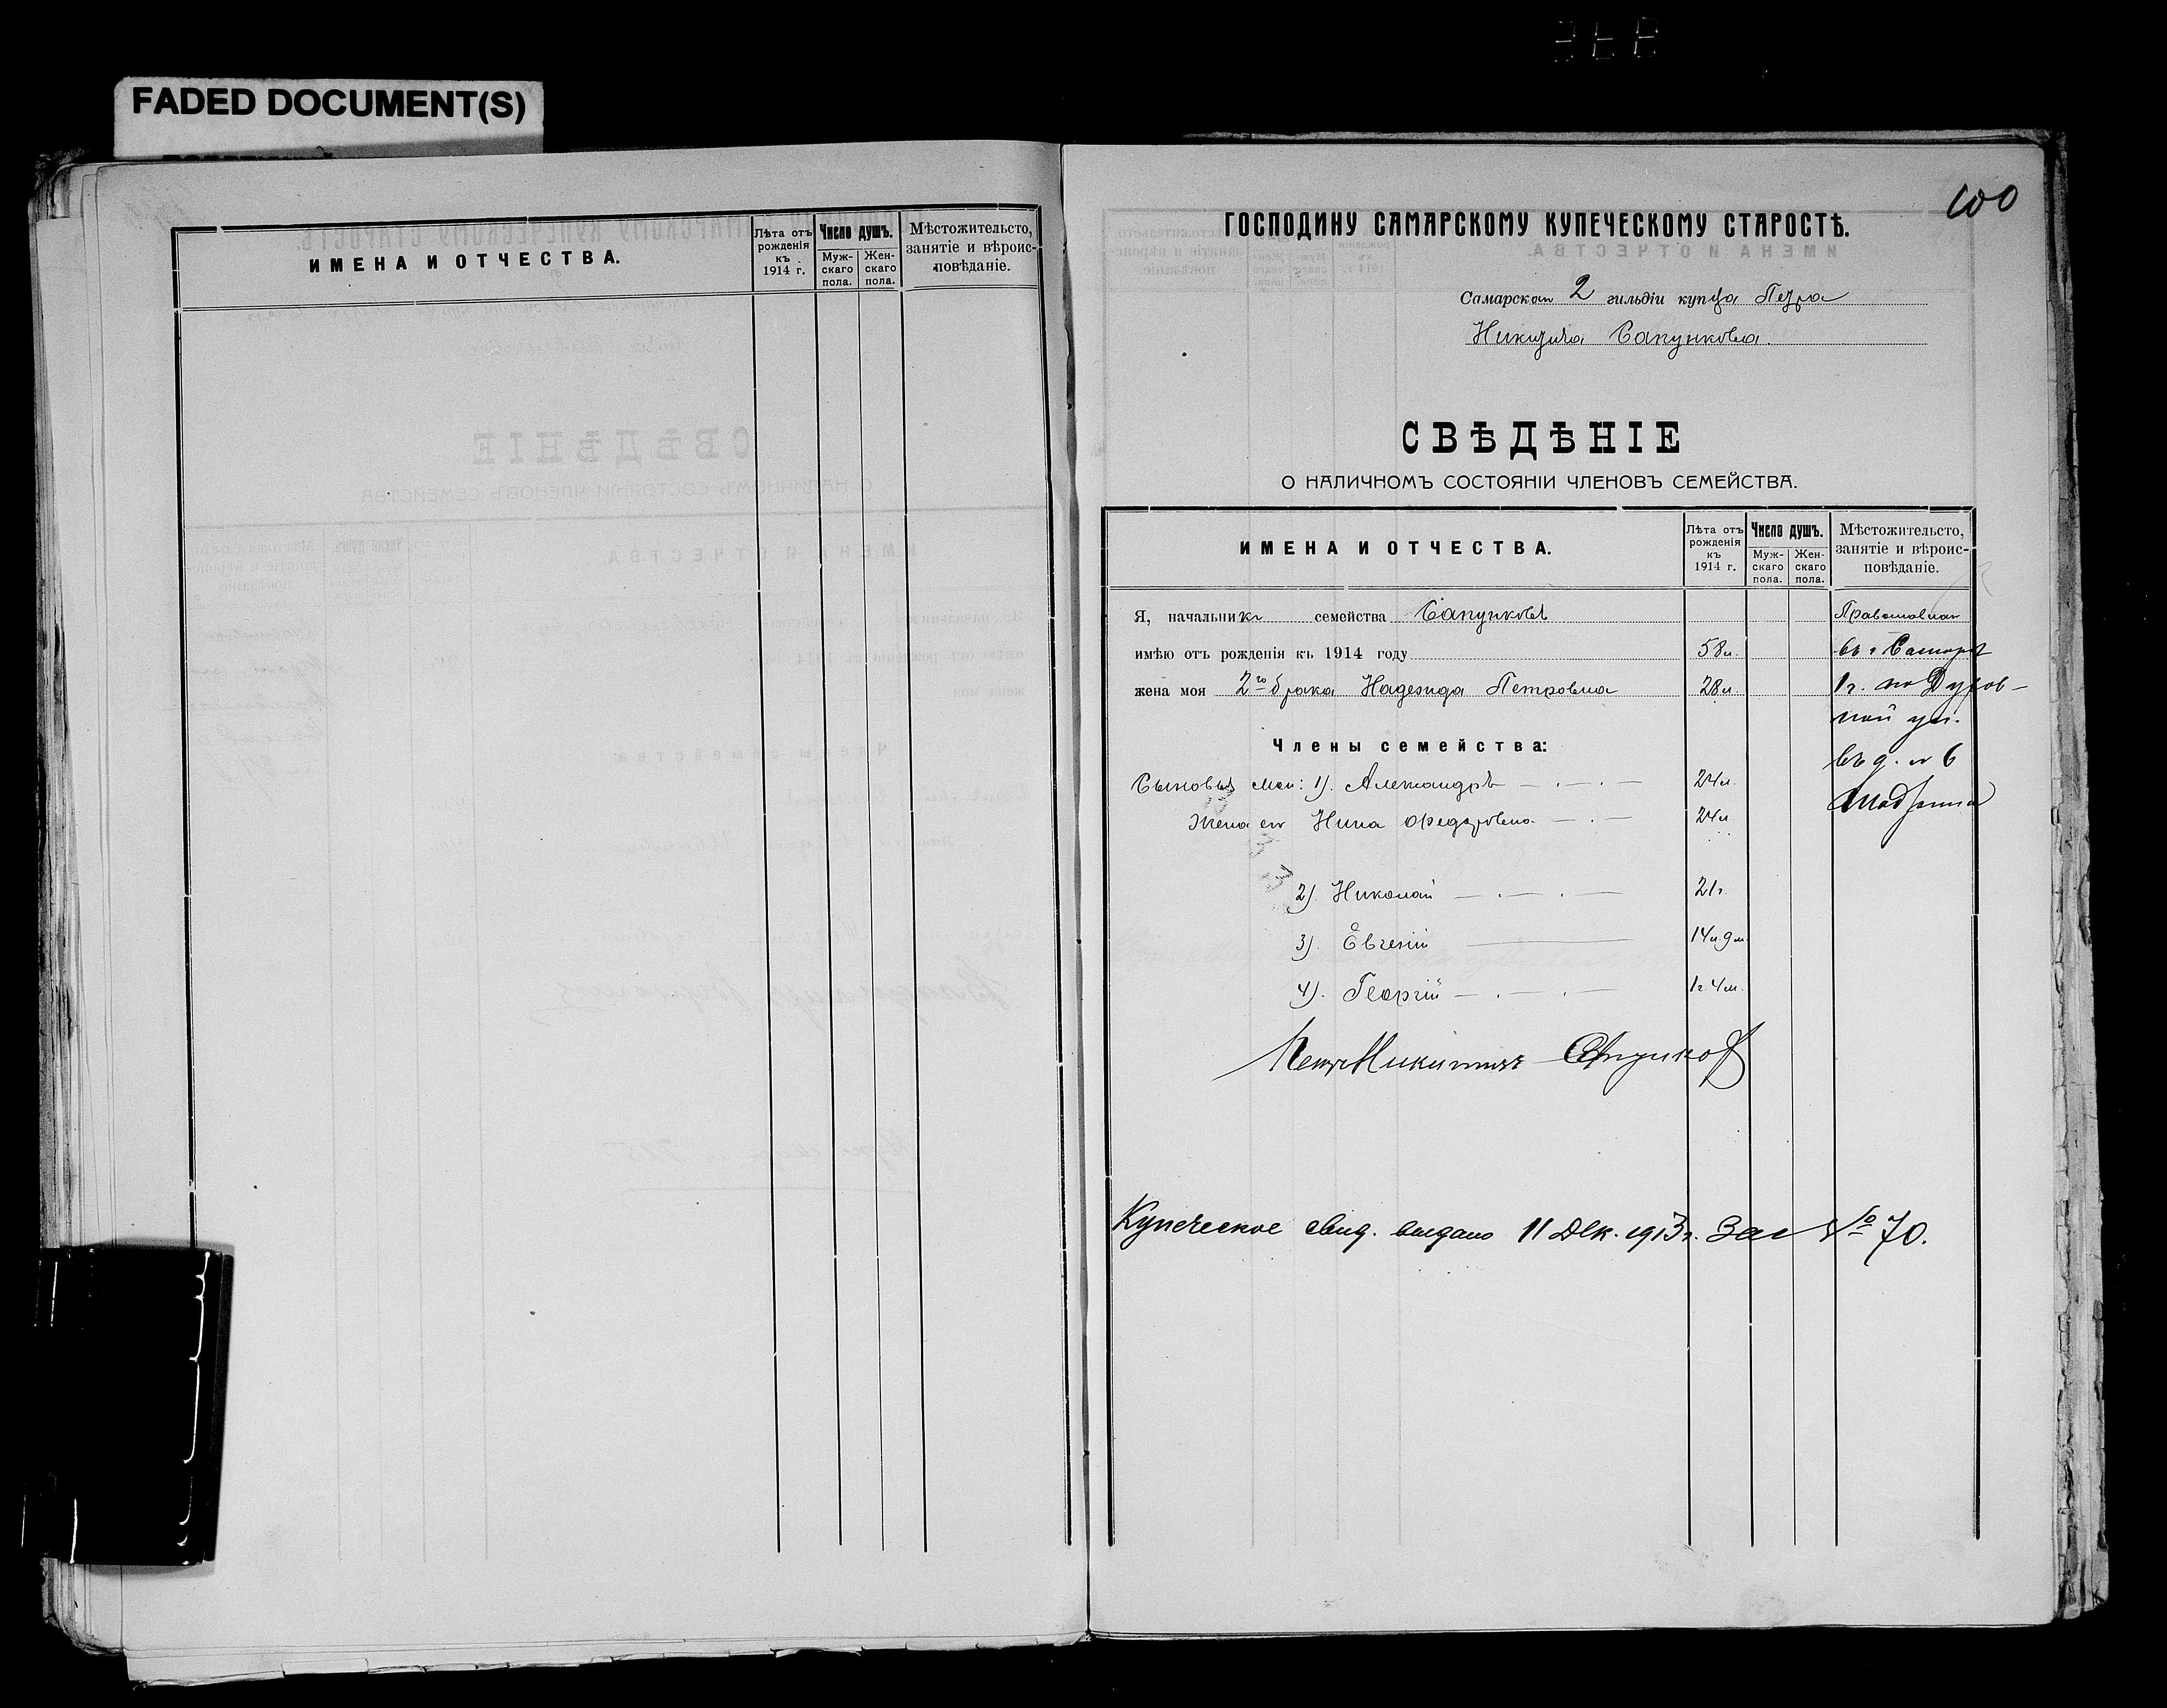 FADED DOCUMENT(S)
ИМЕНА И ОТЧЕСТВА.
Лѣта отъ рожденія къ 1914 г.
Число душъ.
Муж-скаго пола.
Жен-скаго пола.
Мѣстожительсто, занятіе и вѣроис-повѣданіе.
100
ГОСПОДИНУ САМАРСКОМУ КУПЕЧЕСКОМУ СТАРОСТѢ.
Самарскаго 2 гильдіи купца Петра
Никитича Сапункова.
СВѢДѢНІЕ
О НАЛИЧНОМЪ СОСТОЯНІИ ЧЛЕНОВЪ СЕМЕЙСТВА.
ИМЕНА И ОТЧЕСТВА.
Лѣта отъ рожденія къ 1914 г.
Число душъ.
Муж-скаго пола.
Жен-скаго пола.
Мѣстожительсто, занятіе и вѣроис-повѣданіе.
Я, начальникъ семейства Сапунковъ
Православнаго
имѣю отъ рожденія къ 1914 году 58 л. въ г Самарѣ
жена моя 2го брака Надежда Петровна 28 л.
ной ул.
Члены семейства:
въ д. № 6
Сыновья мои: 1). Александръ 24 л.
Жена его Нина Федоровна 24 л
2) Николай 21 г
3). Евгеній 14 л. 9 м.
4). Георгій 1 г. 4 м.
Петръ Никитичъ Сапунков
Купеческое свид. выдано 11 Дек. 1913 г. за № 70.